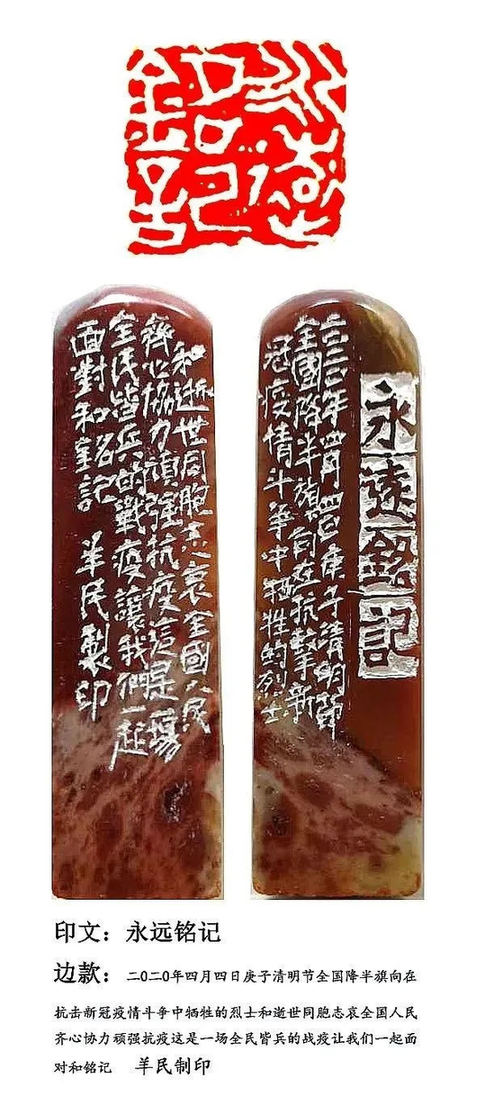 永遠
銘記
永遠銘記
二〇二〇年四月四日庚子清明節
全國降半旗向在抗擊新
冠疫情斗争中牺牲的烈士
和逝世同胞志哀全國人民
齊心協力頑强抗疫這是一場
全民皆兵的戰疫讓我們一起
面對和銘記 羊民製印
印文：永远铭记
边款：二〇二〇年四月四日庚子清明节全国降半旗向在
抗击新冠疫情斗争中牺牲的烈士和逝世同胞志哀全国人民
齐心协力顽强抗疫这是一场全民皆兵的战疫让我们一起面
对和铭记 羊民制印